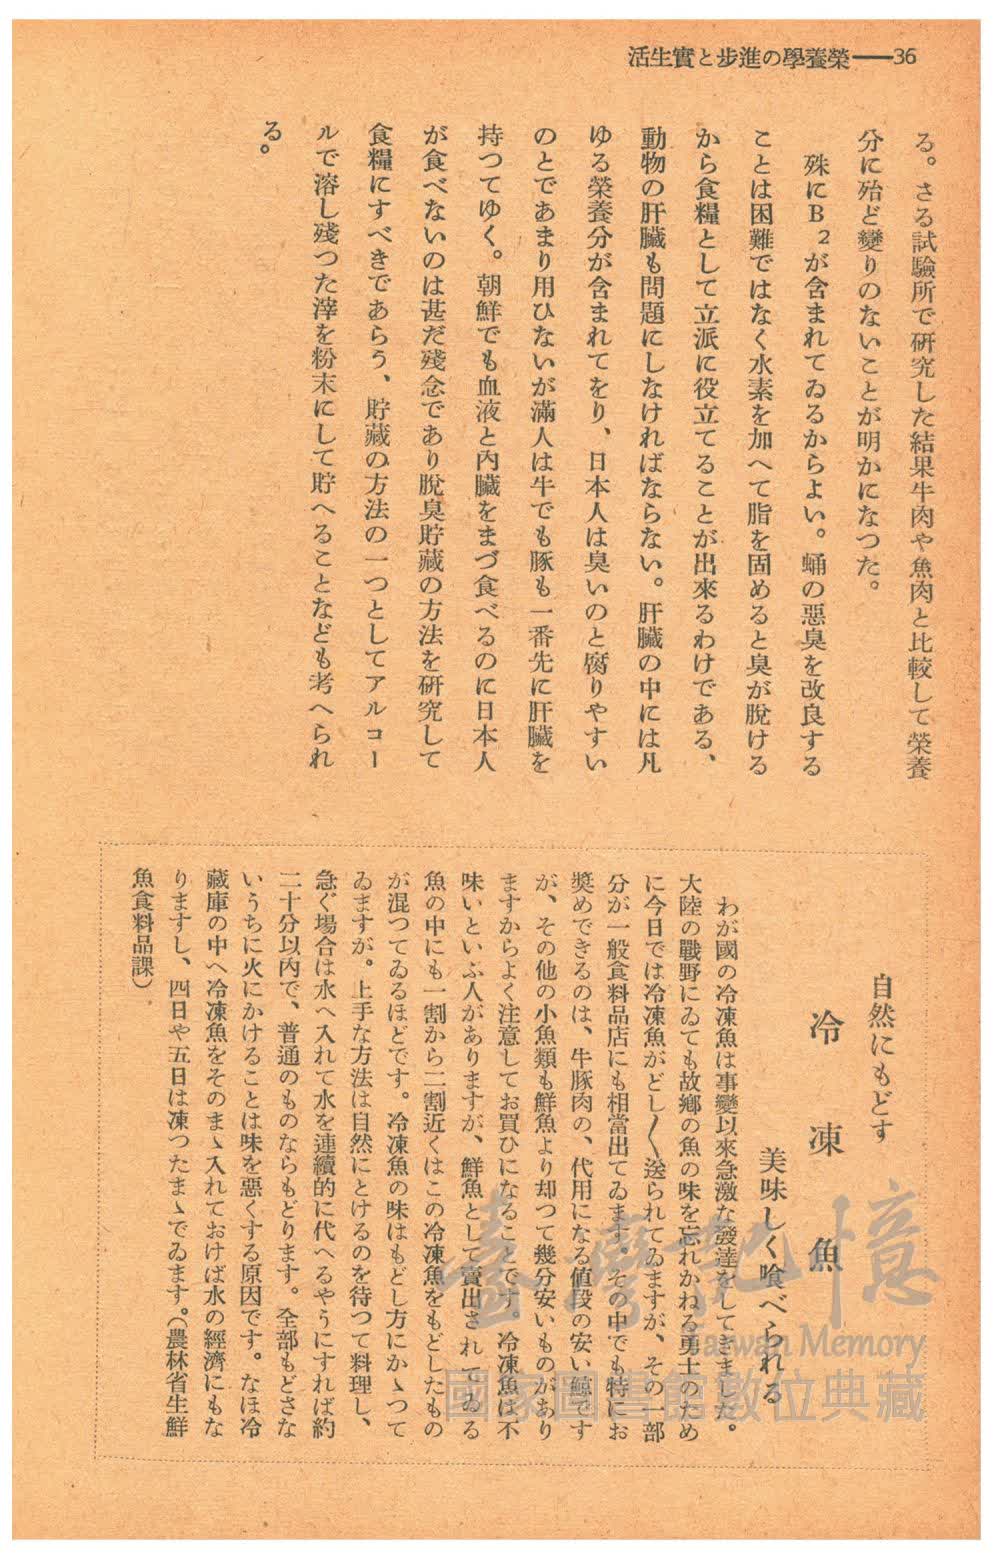 活生實と步進の學養榮――36
る。さる試驗所で研究した結果牛肉や魚肉と比較して榮養
分に殆ど變りのないことが明かになつた。
殊にB2が含まれてゐるからよい。蛹の惡臭を改良する
ことは困難ではなく水素を加へて脂を固めると臭が脫ける
から食糧として立派に役立てることが出來るわけである、
動物の肝臟も問題にしなければならない。肝臟の中には凡
ゆる榮養分が含まれてをり、日本人は臭いのと腐りやすい
のとであまり用ひないが滿人は牛でも豚も一番先に肝臟を
持つてゆく。朝鮮でも血液と內臟をまづ食べるのに日本人
が食べないのは甚だ殘念であり脫臭貯藏の方法を硏究して
食糧にすべきであらう、貯藏の方法の一つとしてアルコー
ルで溶し殘つた滓を粉末にして貯へることなども考へられ
る。
自然にもどす
冷凍魚
美味しく喰べられる
わが國の冷凍魚は事變以來急激な發達をしてきました。
大陸の戰野にゐても故鄕の魚の味を忘れかねる勇士のため
に今日では冷凍魚がどし〳〵送られてゐますが、その一部
分が一般食料品店にも相當出てゐます。その中でも特にお
奬めできるのは、牛豚肉の、代用になる値段の安い鯨です
が、その他の小魚類も鮮魚より却つて幾分安いものがあり
ますからよく注意してお買ひになることです。冷凍魚は不
味いといふ人がありますが、鮮魚として賣出されてゐる
魚の中にも一割から二割近くはこの冷凍魚をもどしたもの
が混つてゐるほどです。冷凍魚の味はもどし方にかゝつて
ゐますが。上手な方法は自然にとけるのを待つて料理し、
急ぐ場合は水へ入れて水を連續的に代へるやうにすれば約
二十分以內で、普通のものならもどります。全部もどさな
いうちに火にかけることは味を惡くする原因です。なほ冷
藏庫の中へ冷凍魚をそのまゝ入れておけば氷の經濟にもな
りますし、四日や五日は凍つたまゝでゐます。(農林省生鮮
魚食料品課)
臺灣記憶
Taiwan Memory
國家圖書館數位典藏